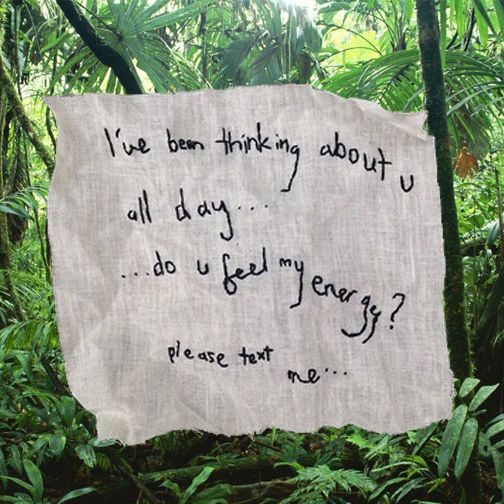 I've been thinking about u
all day...
...do u feel my energy?
please text
me...